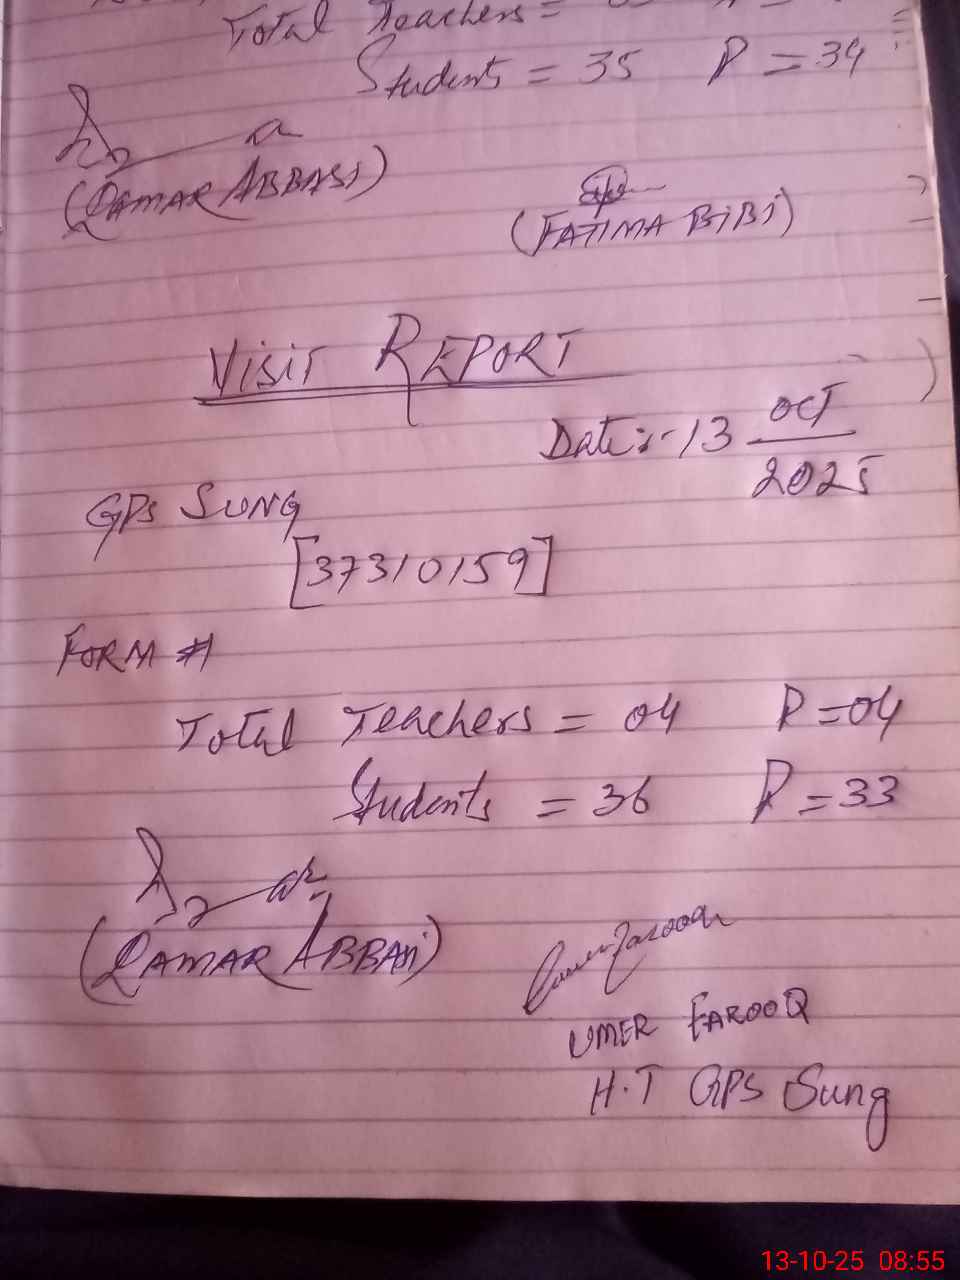 Total Teachers =
Students = 35 P = 34
(QAMAR ABBASI)
(FATIMA BIBI)
VISIT REPORT
Date:- 13 OCT
2025
GPS SUNG
[37310159]
FORM #1
Total Teachers = 04 P = 04
Students = 36 P = 33
(QAMAR ABBASI)
Umer Farooq
UMER FAROOQ
H.T GPS Sung
13-10-25 08:55